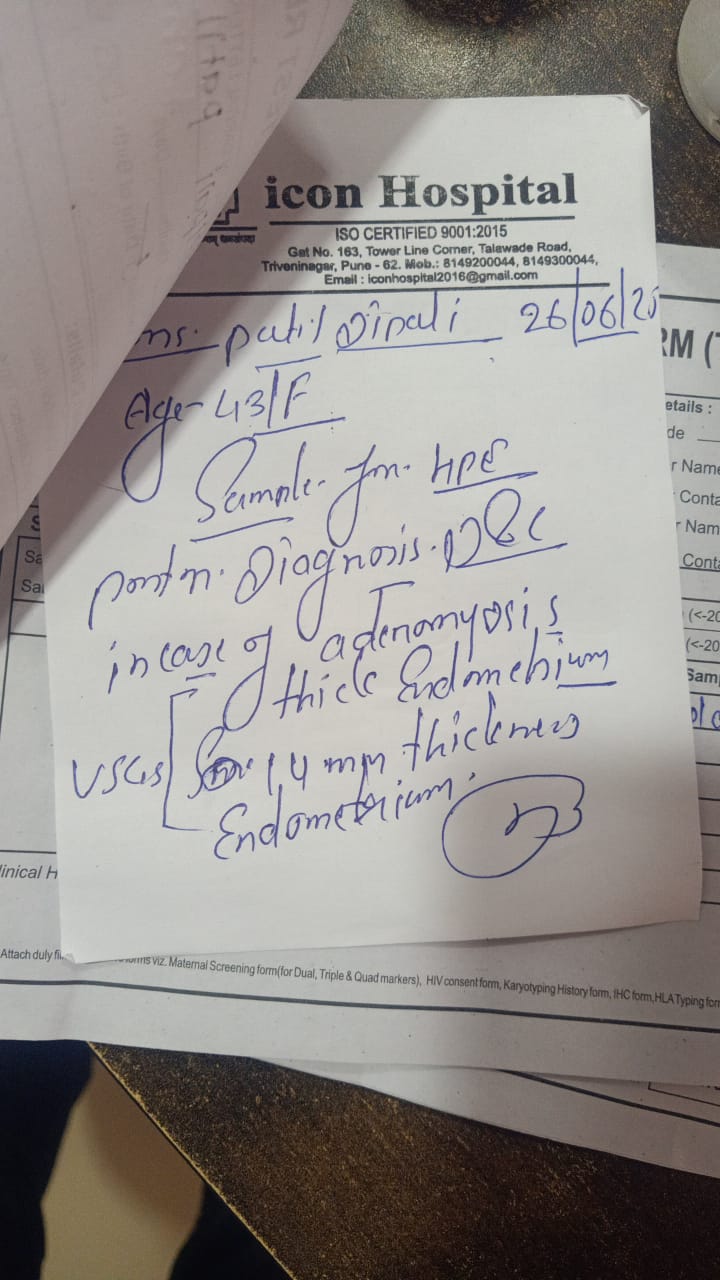 icon Hospital
ISO CERTIFIED 9001:2015
Gat No. 163, Tower Line Corner, Talawade Road,
Triveninagar, Pune - 62. Mob.: 8149200044, 8149300044,
Email : iconhospital2016@gmail.com
patil Dipali 26/06/25
Age- 43/F
Sample for HPE
Diagnosis. D&C
in case of adenomyosis
thick Endometrium
USG 14 mm thickness
Endometrium.
RM (
etails :
de
r Name
Conta
r Nam
Conta
(<-20
(<-20
Sam
Sa
Sa
linical H
Attach duly fi
rms viz. Maternal Screening form(for Dual, Triple & Quad markers), HIV consent form, Karyotyping History form, IHC form, HLA Typing for